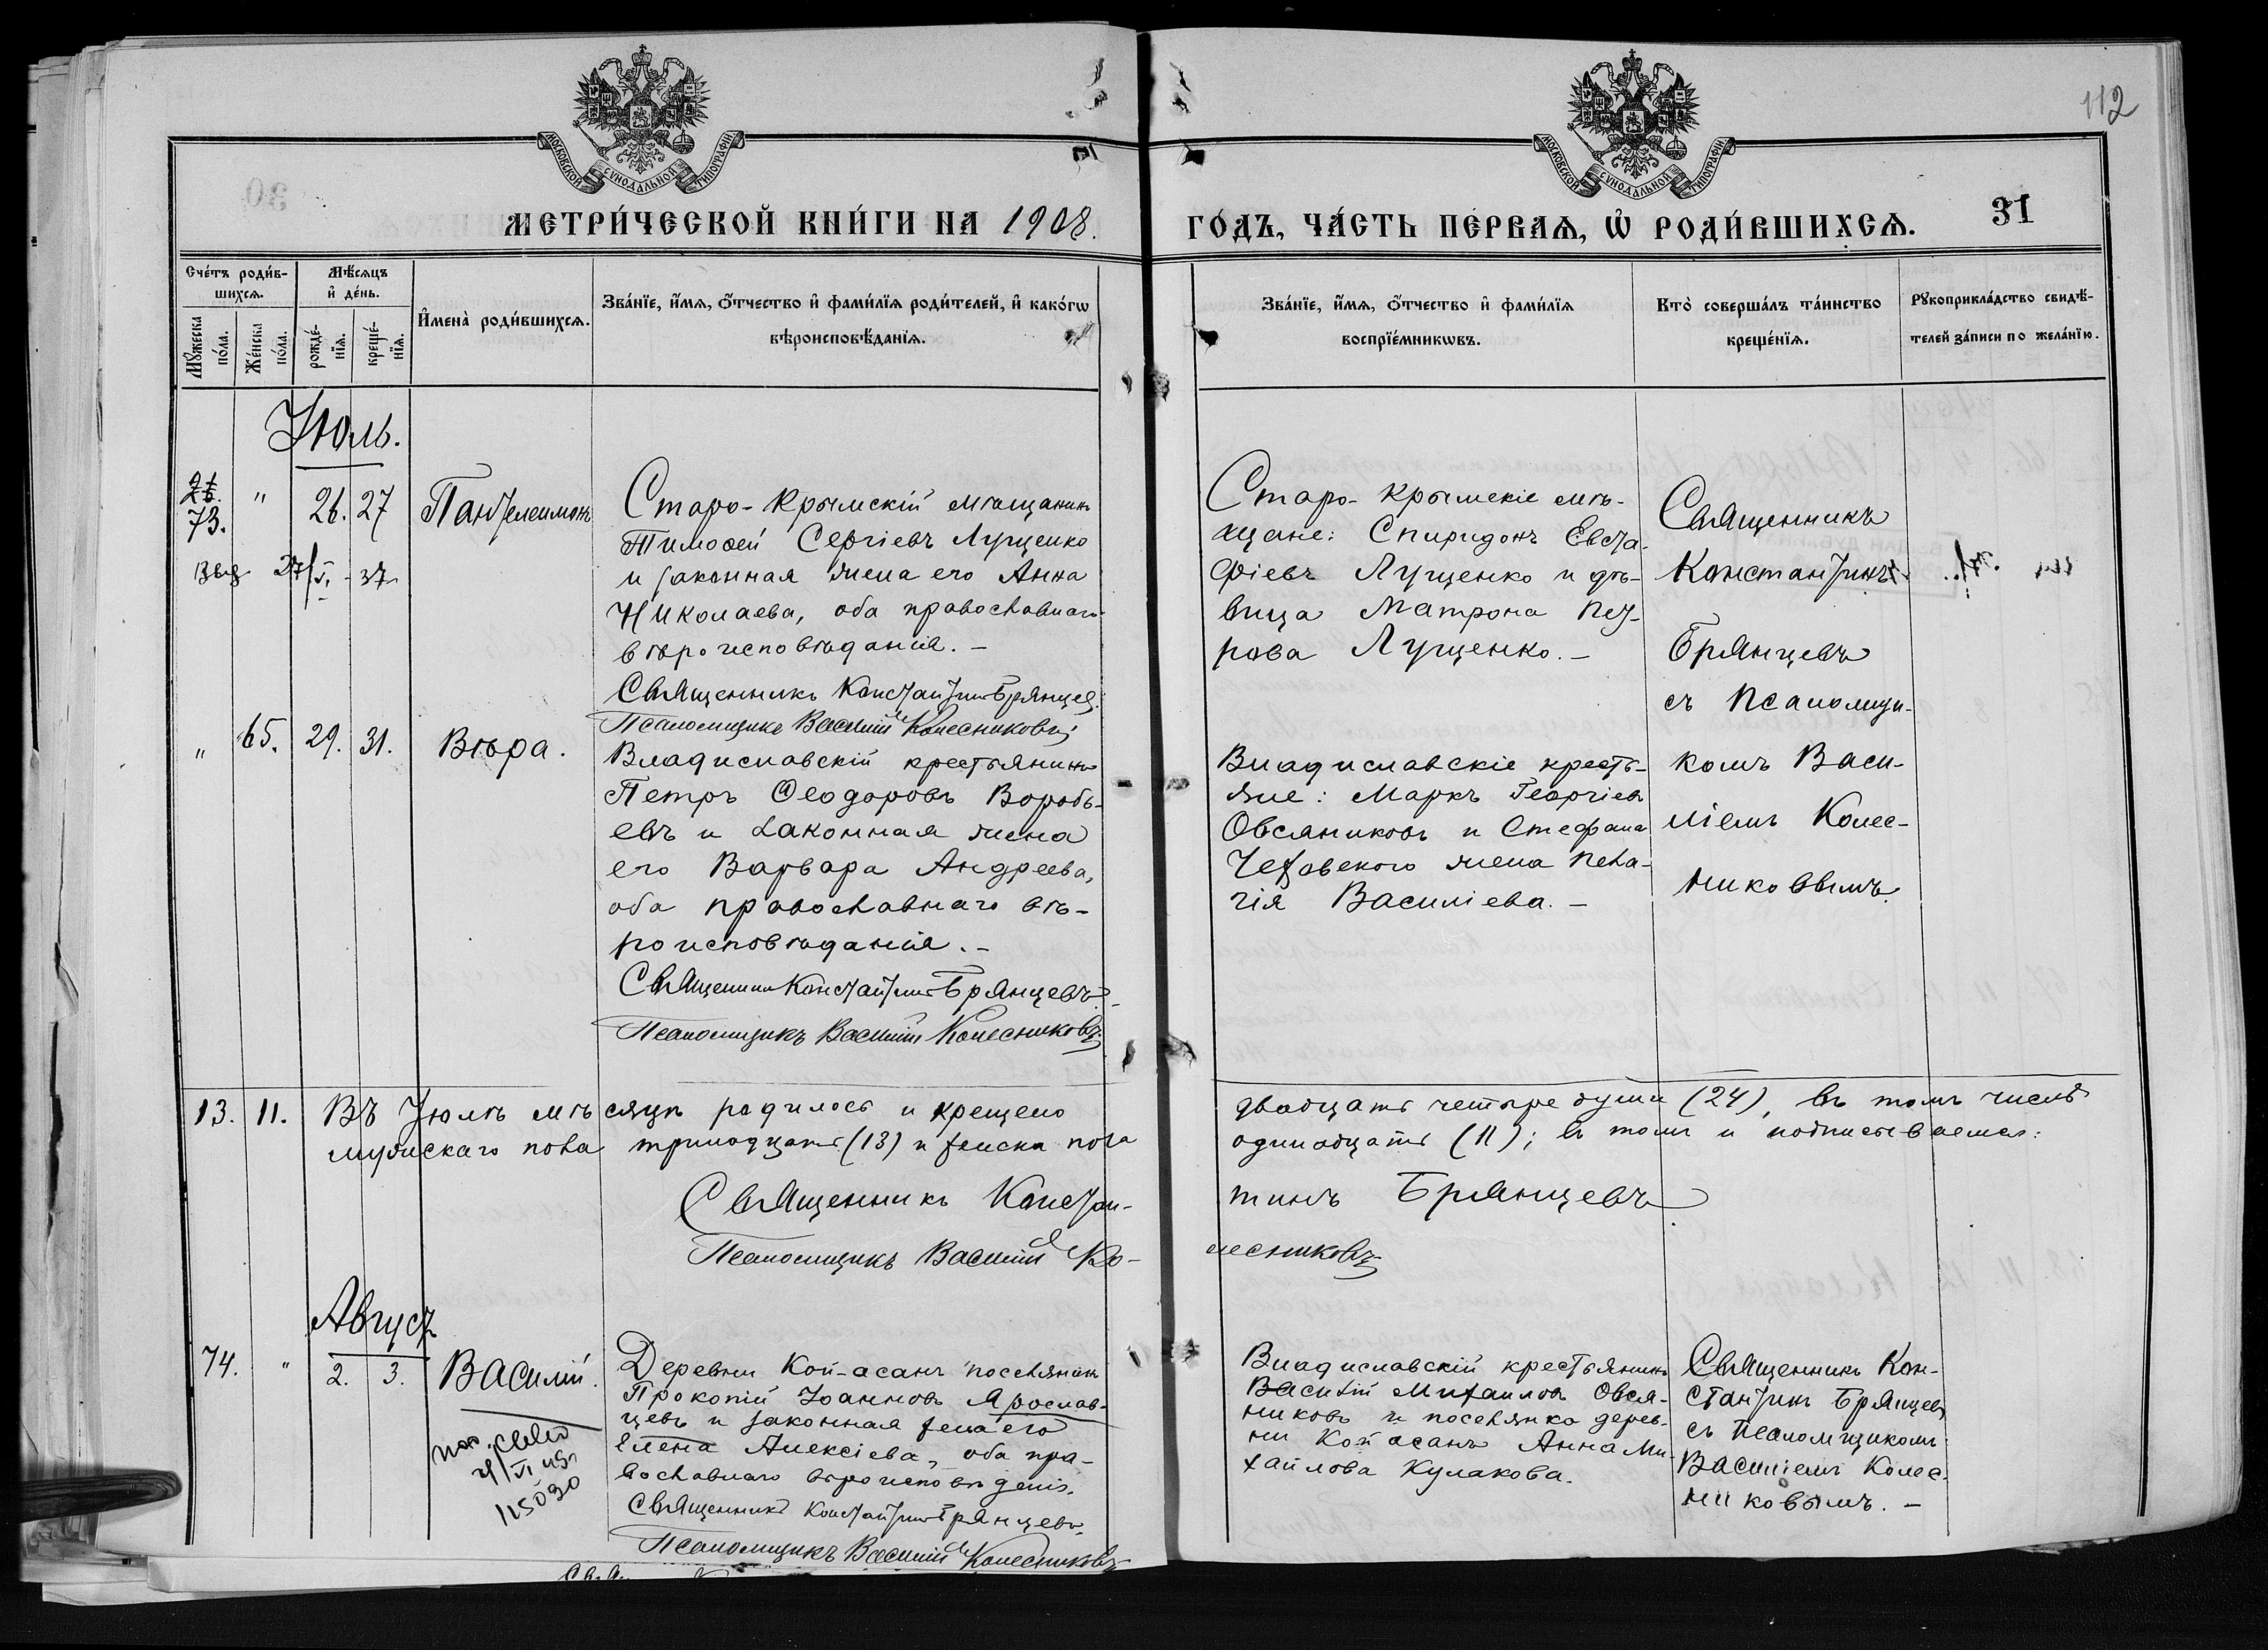 112
МОСКОВСКОЙ СѴНОДАЛЬНОЙ ТИПОГРАФІИ
МОСКОВСКОЙ СѴНОДАЛЬНОЙ ТИПОГРАФІИ
МЕТРИ́ЧЕСКОЙ КНИ́ГИ НА 1908.
ГО́ДЪ, ЧА́СТЬ ПЕ́РВАѦ, Ѡ҆ РОДИ́ВШИХСѦ.
31
Сче́тъ роди́в-
шихсѧ.
Мꙋ́жеска
по́ла.
Же́нска
по́ла.
Мѣ́сѧцъ
и҆ де́нь.
рожде́-
нїѧ.
креще́-
нїѧ.
И҆мена̀ роди́вшихсѧ.
Зва́нїе, и҆́мѧ, ѻ҆́тчество и҆ фами́лїѧ роди́телей, и҆ како́гѡ
вѣроисповѣ́данїѧ.
Зва́нїе, и҆́мѧ, ѻ҆́тчество и҆ фами́лїѧ
воспрїе́мникѡвъ.
Кто̀ соверша́лъ та́инство
креще́нїѧ.
Рꙋкоприкла́дство свидѣ́-
телей за́писи по жела́нїю.
Іюль.
73.
"
26.
27
Пантелеимонъ
Старо-Крымскій мѣщанинъ
Тимоѳей Сергіевъ Лущенко
и законная жена его Анна
Николаева, оба православнаго
вѣроисповѣданія. –
Священникъ Константинъ Брянцевъ.
Псаломщикъ Василій Колесниковъ
Старо-Крымскіе мѣ-
щане: Спиридонъ Евста-
фіевъ Лущенко и дѣ-
вица Матрона Пет-
рова Лущенко. –
Священникъ
Константинъ
Брянцевъ
съ Псаломщи-
комъ Васи-
ліемъ Колес-
никовымъ.
27/VI - 37
"
65.
29.
31.
Вѣра.
Владиславскій крестьянинъ
Петръ Ѳеодоровъ Воробь-
евъ и законная жена
его Варвара Андреева,
оба православнаго вѣ-
роисповѣданія. –
Священникъ Константинъ Брянцевъ.
Псаломщикъ Василій Колесниковъ
Владиславскіе кресть-
яне: Маркъ Георгіевъ
Овсяниковъ и Стефана
жена Пела-
гія Василіева. –
13.
11.
Въ Іюлѣ мѣсяцѣ родилось и крещено
двадцать четыре души (24), въ томъ числѣ
мужскаго пола тринадцать (13) и женска пола
одинадцать (11); въ томъ и подписываемся:
Священникъ Констан-
тинъ Брянцевъ
Псаломщикъ Василій Ко-
лесниковъ
Августъ
74.
"
2.
3.
Василій.
Деревни Кой-асанъ поселянинъ
Прокопій Іоанновъ Ярослав-
цевъ и законная жена его
Елена Алексіева, оба пра-
вославнаго вѣроисповѣданія.
Священникъ Константинъ Брянцевъ.
Псаломщикъ Василій Колесниковъ
Владиславскій крестьянинъ
Василій Михаиловъ Овся-
никовъ и поселянка дерев-
ни Кой асанъ Анна Ми-
хайлова Кулакова.
Священникъ Кон-
стантинъ Брянцевъ
съ Псаломщикомъ
Василіемъ Колес-
никовымъ. –